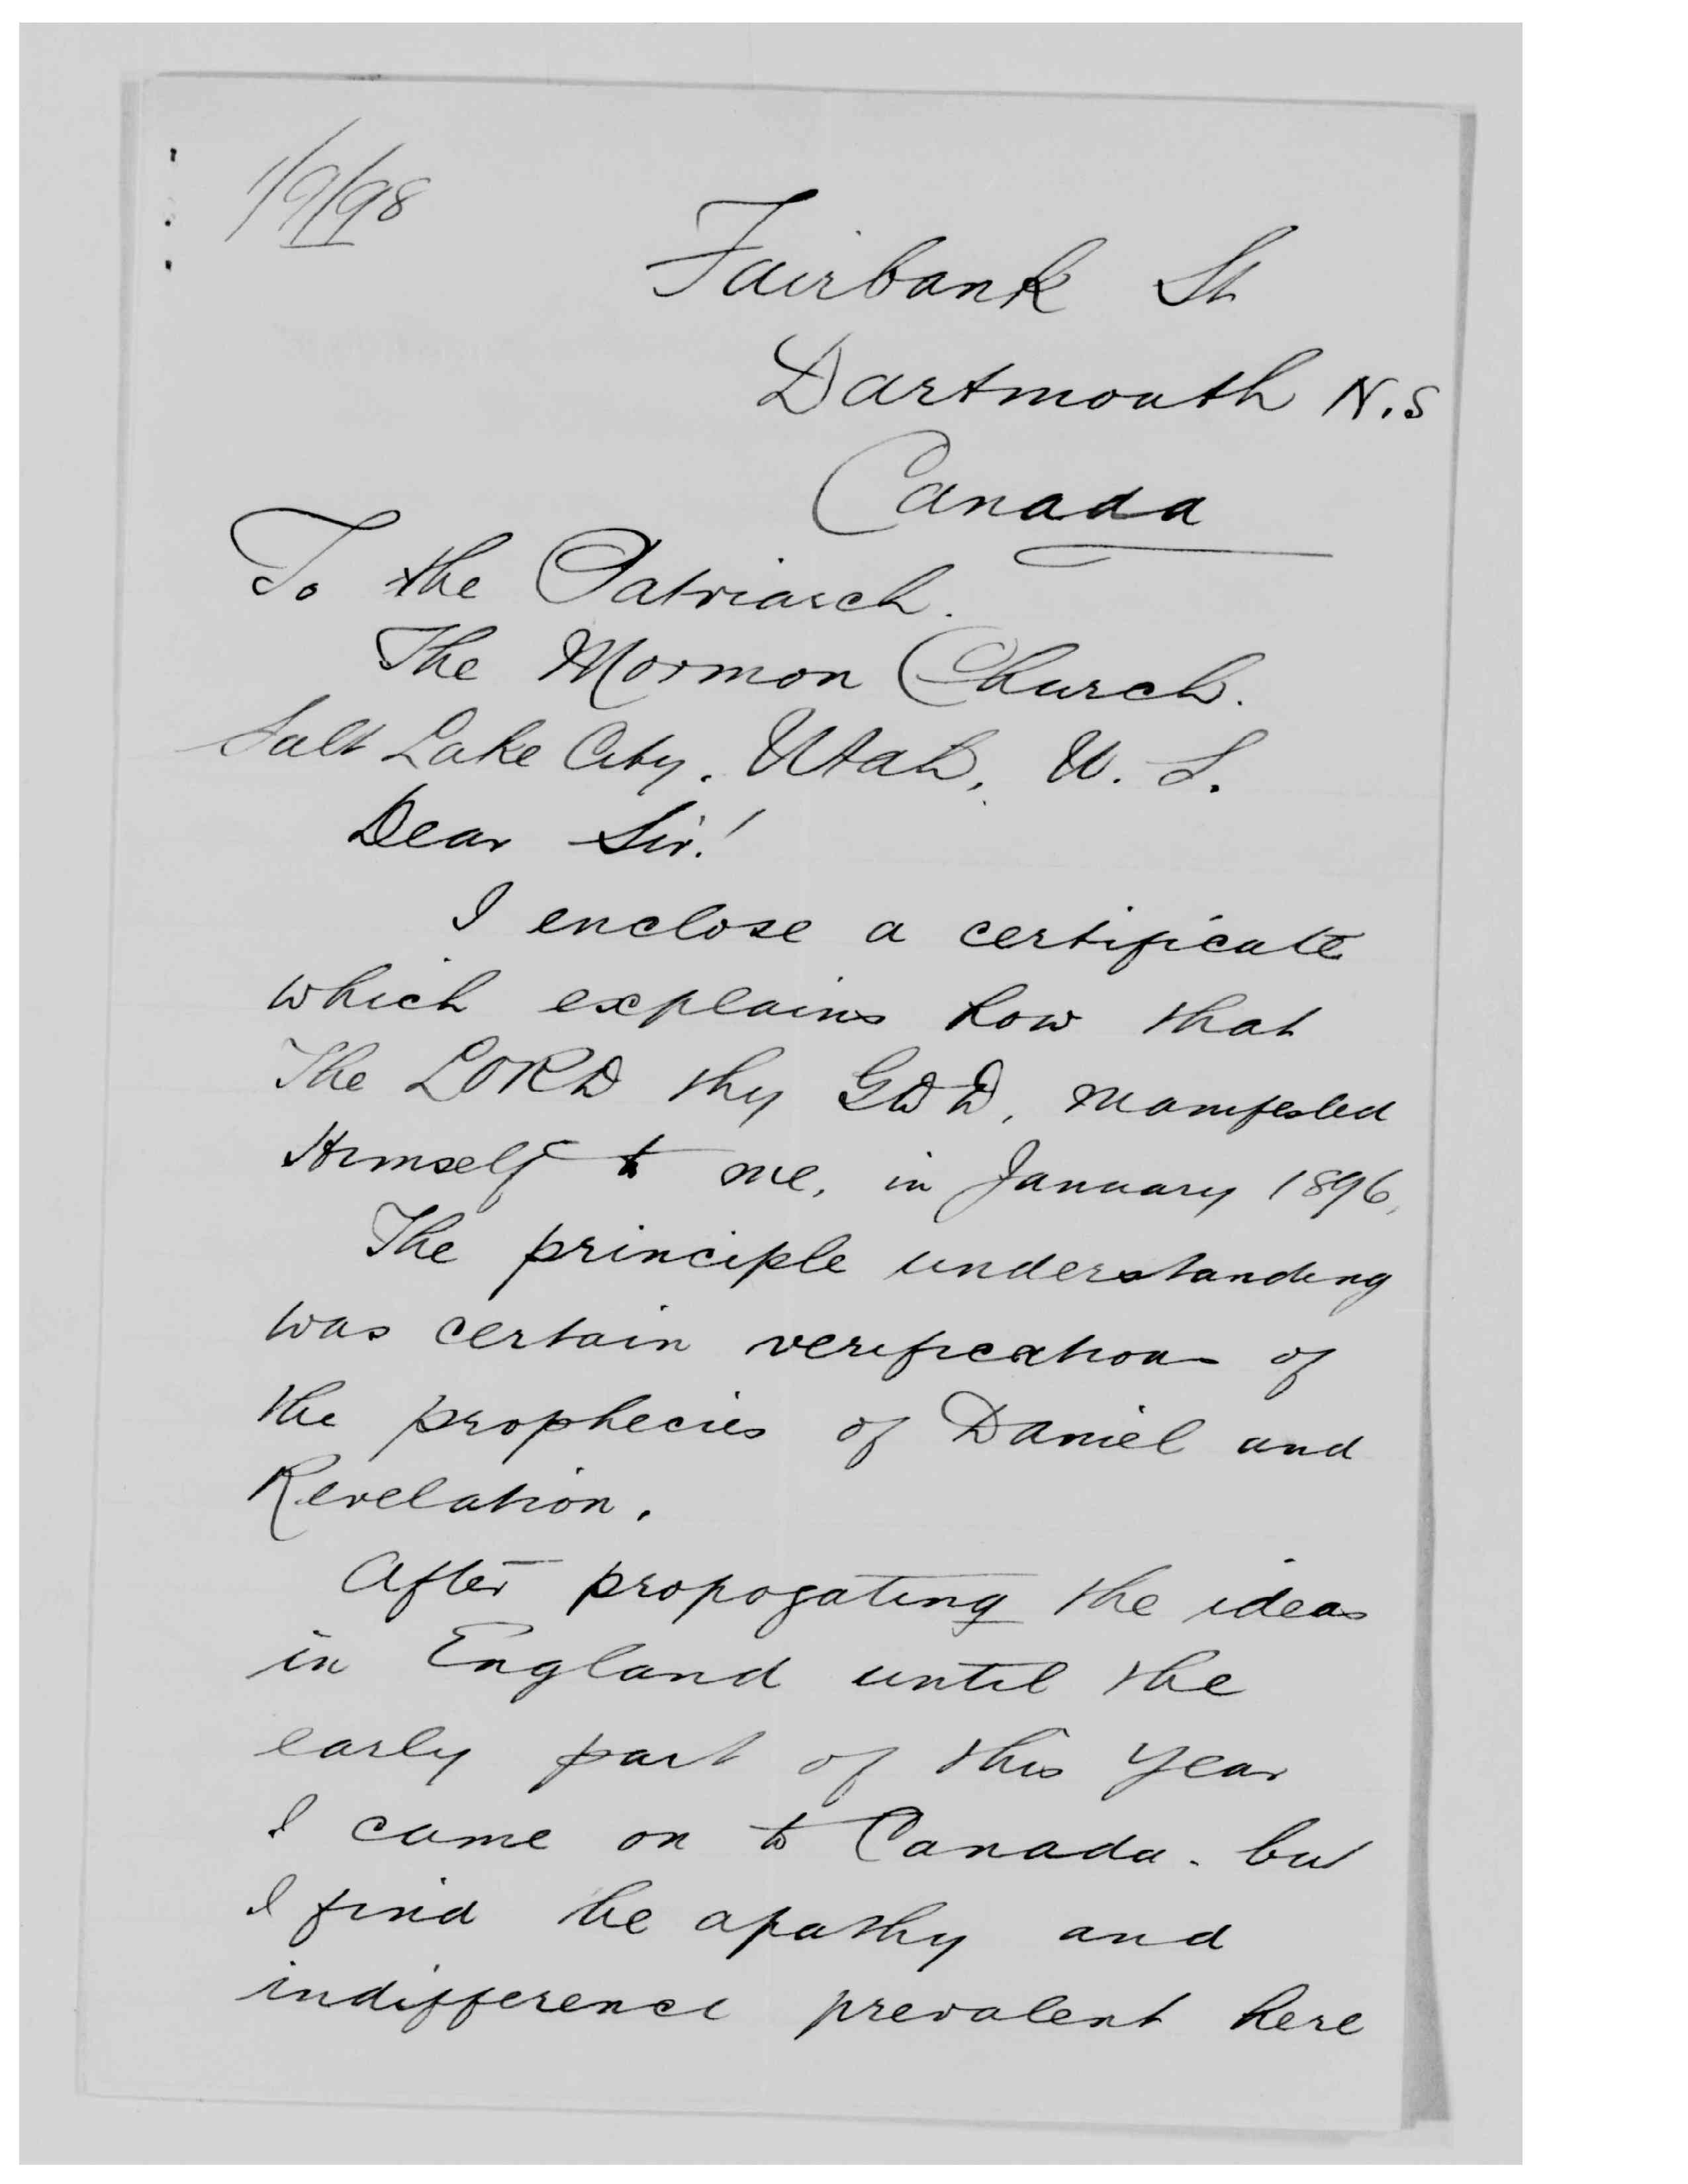 1/9/98
Fairbank St
Dartmouth N.S
Canada
To the Patriarch.
The Mormon Church.
Salt Lake City. Utah, U. S.
Dear Sir!
I enclose a certificate
which explains how that
The LORD thy GOD, manifested
Himself to me, in January 1896,
The principle understanding
was certain verifications of
the prophecies of Daniel and
Revelation.
After propogating the ideas
in England until the
early part of this year
I came on to Canada. but
I find the apathy and
indifference prevalent here